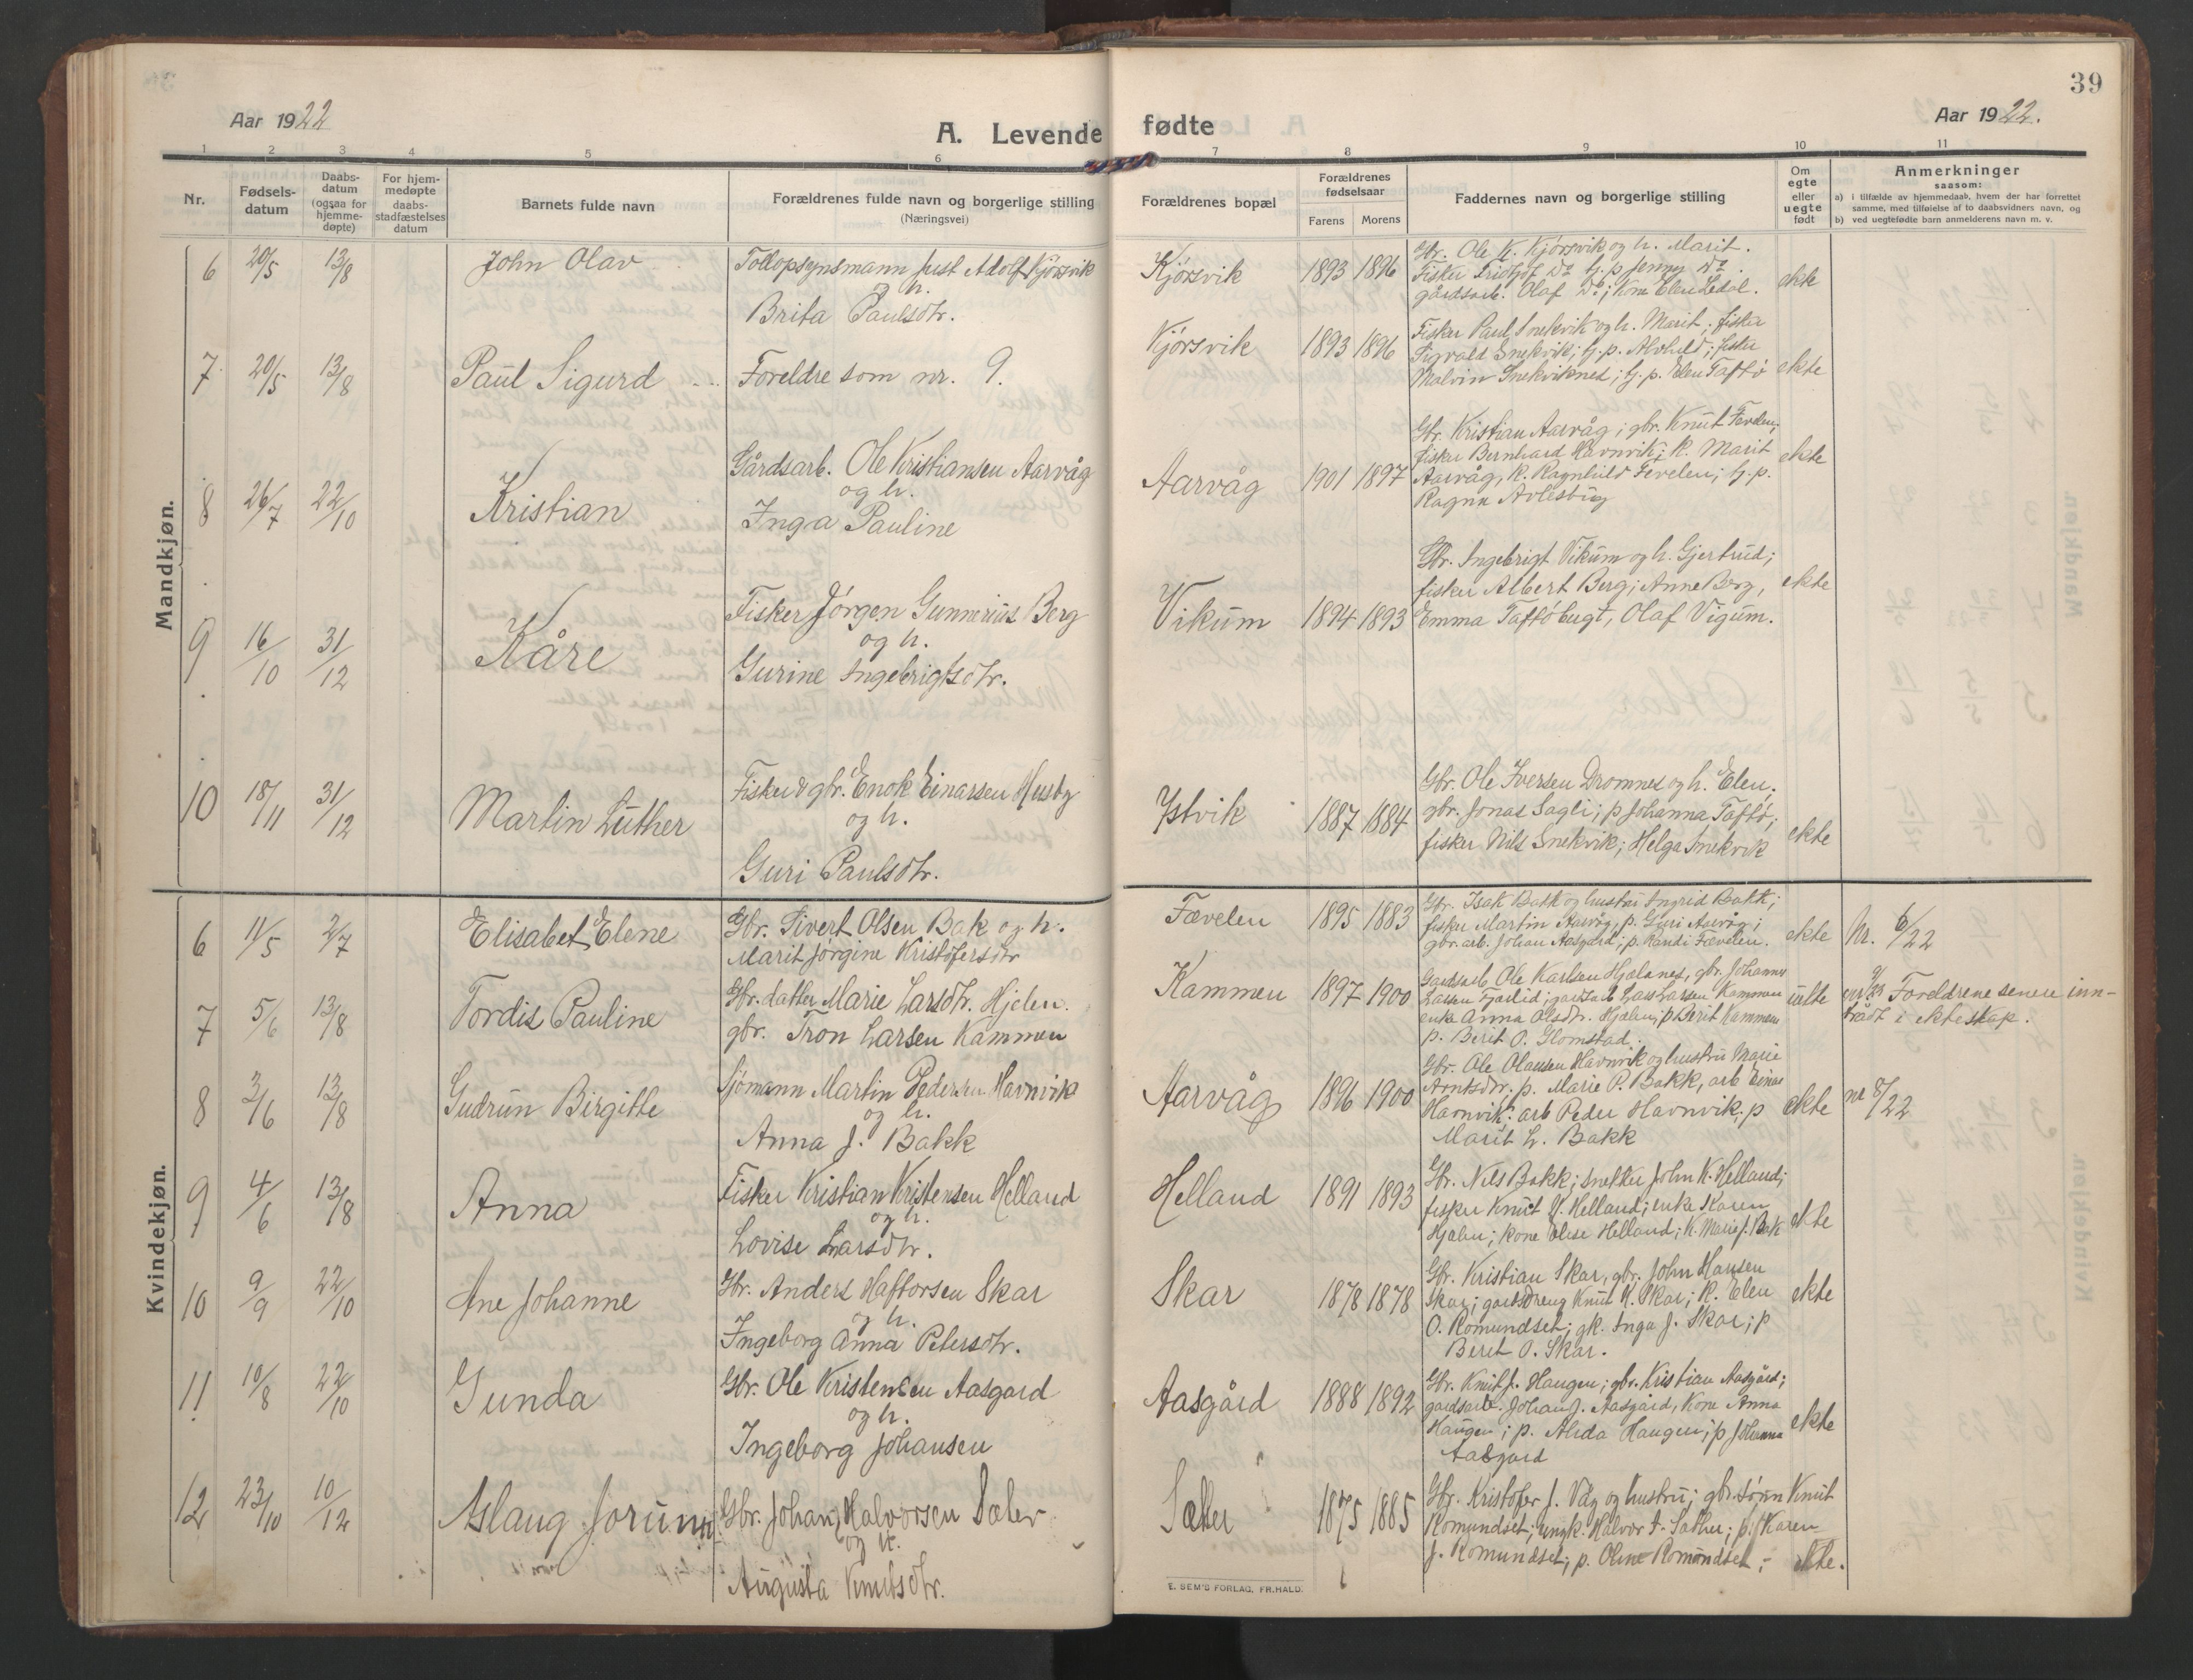 39
Aar 1922
A. Levende fødte
Aar 1922.
1 2 3 4 5 6 7 8 9 10 11
Nr.
Fødsels-
datum
Daabs-
datum
(ogsaa for
hjemme-
døpte)
For hjem-
medøpte
daabs-
stadfæstelses
datum
Barnets fulde navn
Forældrenes fulde navn og borgerlige stilling
(Næringsvei)
Forældrenes bopæl
Forældrenes
fødselsaar
Farens Morens
Faddernes navn og borgerlige stilling
Om
egte
eller
uegte
født
Anmerkninger
saasom:
a) i tilfælde av hjemmedaab, hvem der har forrettet
samme, med tilføielse af to daabsvidners navn, og
b) ved uegtefødte barn anmelderens navn m. v.
Mandkjøn.
6 20/5 13/8 John Olav
Tollopsynsmann Just Adolf Kjørsvik
og h.
Brita Paulsdtr.
Kjørsvik 1893 1896
Gbr. Ole K. Kjørsvik og h. Marit.
Fisker Fridtjof do tj. p Jenny do.
gårdsarb. Olaf do; Kone Elen Ledal.
ekte
7 20/5 13/8 Paul Sigurd
Foreldre som nr. 9.
Kjørsvik 1893 1896
Fisker Paul Snekvik og h. Marit; fisker
Sigvald Snekvik; tj. p. Alvhild; fisker
Malvin Snekviknes; tj. p. Elen Taftø
ekte
8 26/7 22/10 Kristian
Gårdsarb. Ole Kristiansen Aarvåg
og h.
Inga Pauline
Aarvåg 1901 1897
Gbr. Kristian Aarvåg; gbr. Knut Fævelen;
fisker Bernhard Havnvik; K. Marit
Aarvåg, K. Ragnhild Fevelen; tj. p.
Ragna
ekte
9 16/10 31/12 Kåre
Fisker Jørgen Gunnerius Berg
og h.
Gurine Ingebrigtsdtr.
Vikum 1894 1893
Gbr. Ingebrigt Vikum og h. Gjertrud;
fisker Albert Berg; Anne Berg,
Emma Taftøbugt, Olaf Vigum.
ekte
10 18/11 31/12 Martin Luther
Fisker & gbr. Enok Einarsen Husby
og h.
Guri Paulsdtr.
Ystvik 1887 1884
Gbr. Ole Iversen Dromnes og h. Elen;
gbr. Jonas Sagli; p Johanna Taftø;
fisker Nils Snekvik; Helga Snekvik
ekte
Kvindekjøn.
6 11/5 2/7 Elisabet Elene
Gbr. Sivert Olsen Bak og h.
Marit Jørgine Kristofersdtr
Fævelen 1895 1883
Gbr. Isak Bakk og hustru Ingrid Bakk;
fisker Martin Aarvåg, p. Guri Aarvåg;
gbr. arb. Johan Aasgård; p. Randi Fævelen.
ekte Nr. 6/22
7 5/6 13/8 Tordis Pauline
Gbr. datter Marie Larsdtr. Hjelen.
gbr. Tron Larsen Kammen
Kammen 1897 1900
Gardsarb Ole Karlsen Hjælnes, gbr. Johannes
Larsen; gardsarb Lars Larsen Kammen
enke Anna Olsdtr. Hjælen; p Berit Kammen
p. Berit O. Glomstad.
uekte Foreldrene senere inn-
trådt i ekteskap.
8 3/6 13/8 Gudrun Birgitte
Sjømann Martin Pedersen Havnvik
og h.
Anna J. Bakk
Aarvåg 1896 1900
Gbr. Ole Olausen Havnvik og hustru Marie
Arntsdtr, p. Marie P. Bakk, arb Einar
Havnvik; arb Peder Havnvik; p
Marit L. Bakk
ekte nr 8/22
9 4/6 13/8 Anna
Fisker Kristian Kristensen Helland
og h.
Lovise Larsdtr.
Helland 1891 1893
Gbr. Nils Bakk; snekker John K. Helland;
fisker Knut J. Helland; enke Karen
Hjælen; kone Elise Helland; K. Marie J. Bak
ekte
10 9/9 22/10 Ane Johanne
Gbr. Anders Haftorsen Skar
og h.
Ingeborg Anna Petersdtr.
Skar 1878 1878
Gbr. Kristian Skar, gbr. John Hansen
Skar; gardsdreng Knut K. Skar; K. Elen
O. Romundset; gk. Inga J. Skar; p
Berit O. Skar.
ekte
11 10/8 22/10 Gunda
Gbr. Ole Kristensen Aasgard
og h.
Ingeborg Johansen
Aasgård 1888 1892
Gbr. Knut J. Haugen; gbr. Kristian Aasgård;
gardsarb. Johan J. Aasgård, Kone Anna
Haugen; p. Alida Haugen; p Johanna
Aasgard
ekte
12 23/10 10/12 Aslaug Jorunn
Gbr. Johan Halvorsen Sæter
og h.
Augusta Knutsdtr.
Sæter 1875 1885
Gbr. Kristofer J. Våg og hustru; gbr. sønn Knut
Romundset; ungk. Halvor J. Sæther; p. Karen
J. Romundset; p. Oline Romundset;
ekte.
E. SEM'S FORLAG, FR.HALD.